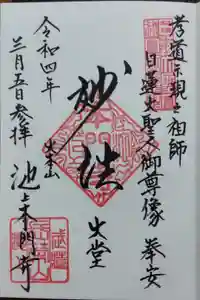 孝道示親之祖師
日蓮大聖人御尊像 奉安
妙法
大堂
大本山
池上本門寺
令和四年
三月五日参拝